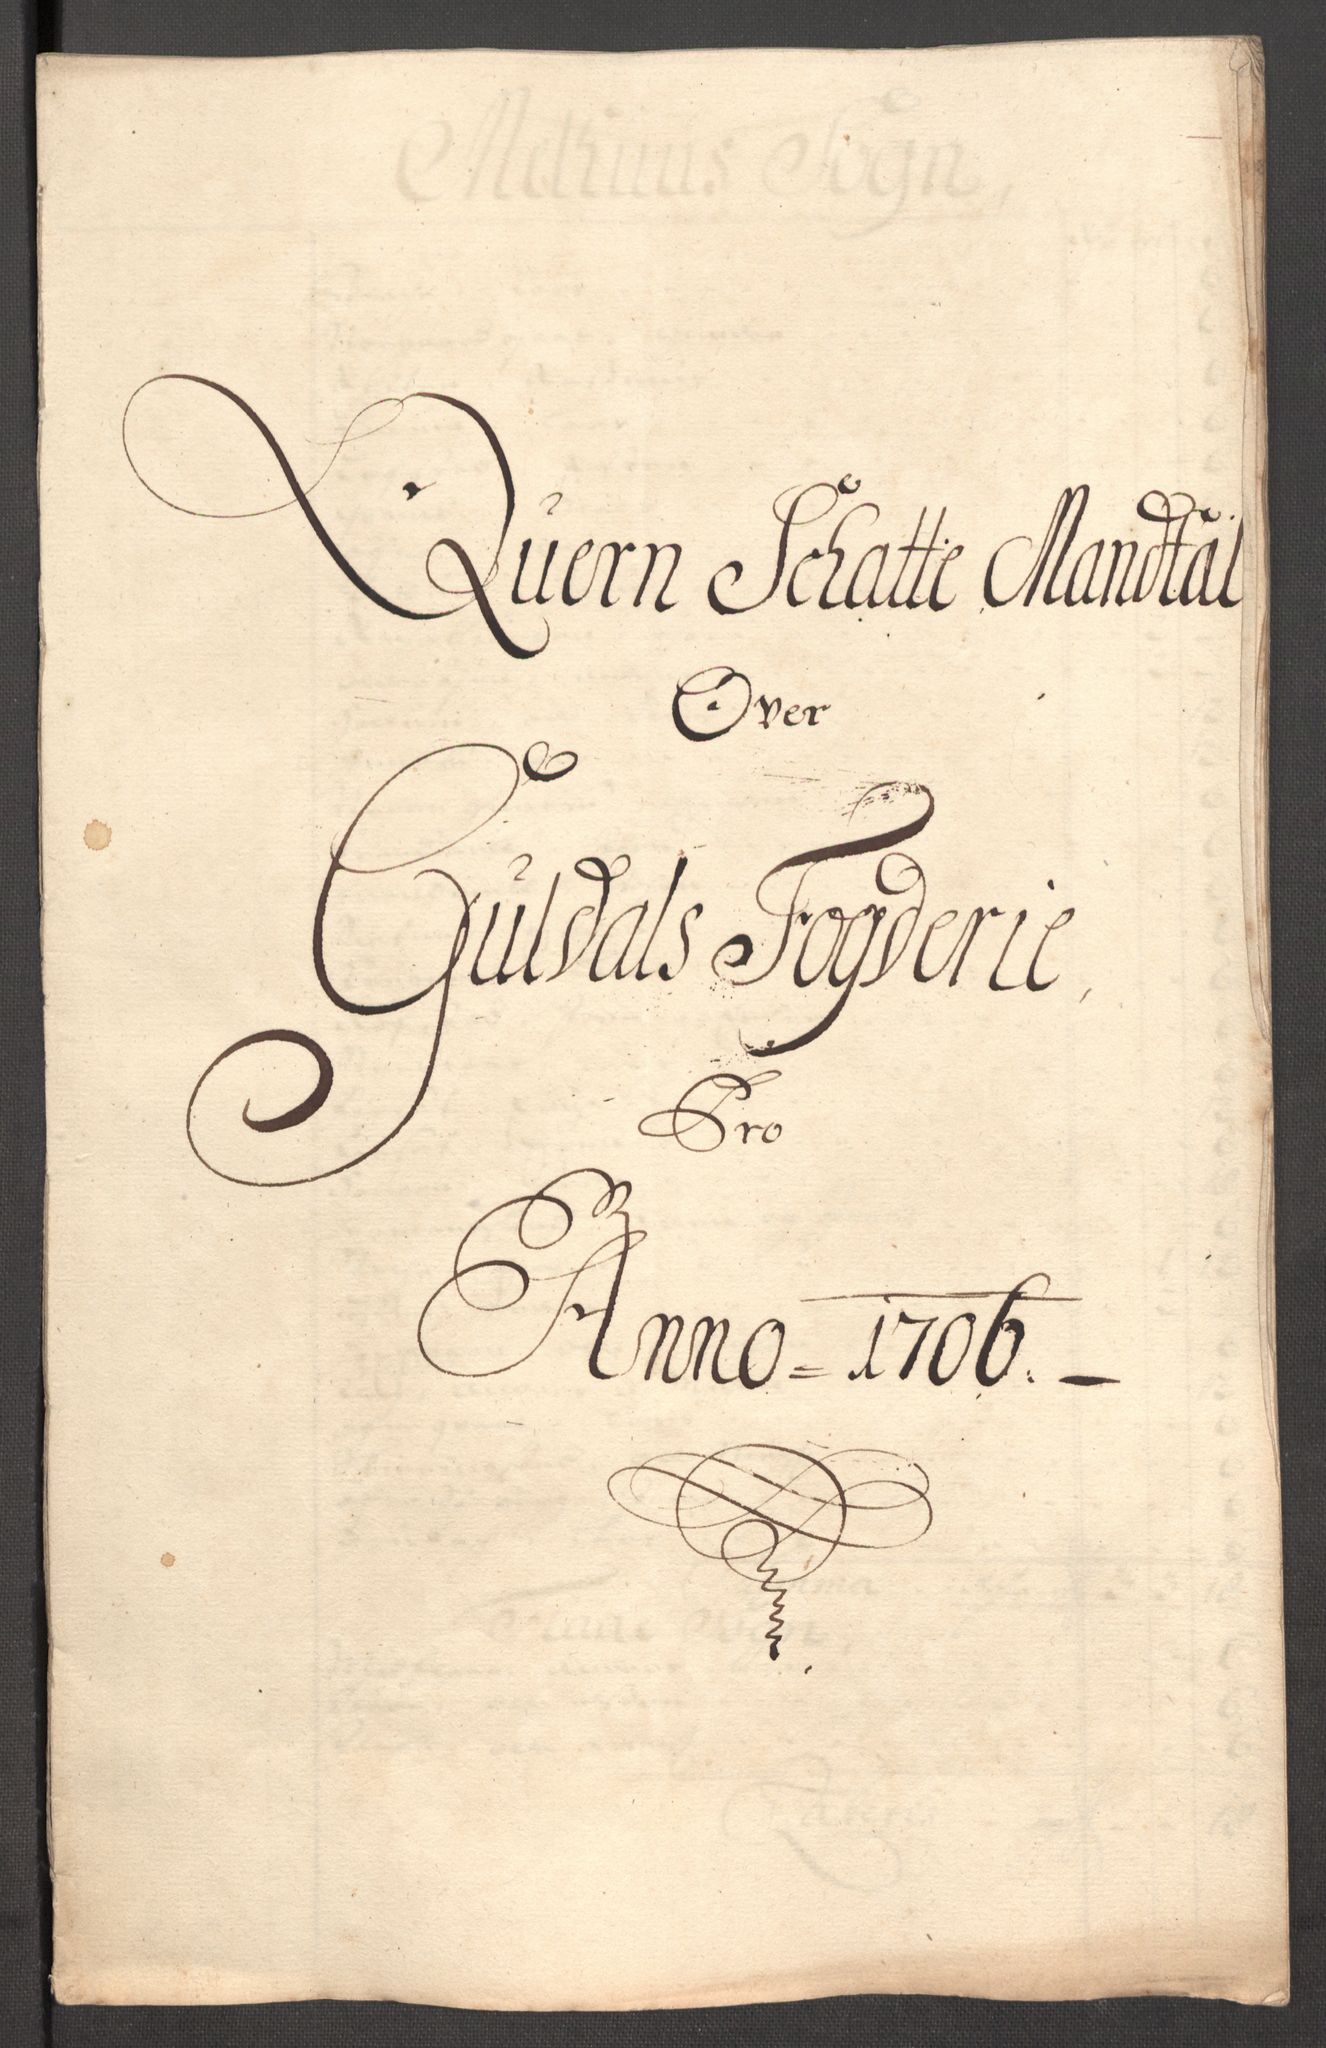 Quern Schatte Mandtal
Over
Guldals Fogderie,
Pro
Anno = 1706. –